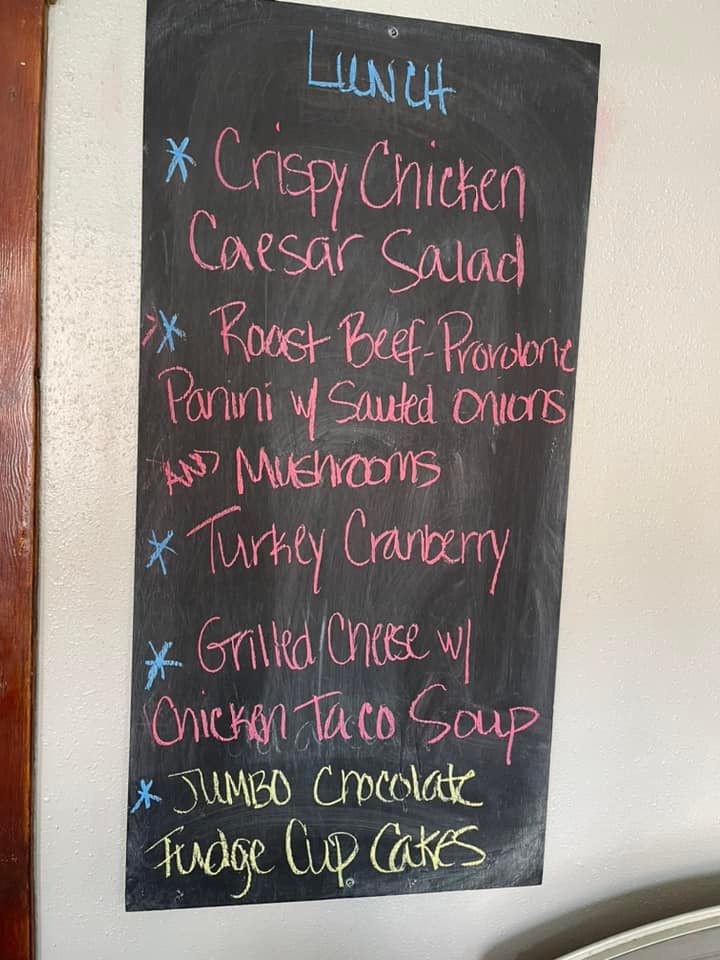 LUNCH
* Crispy Chicken
Caesar Salad
* Roast Beef-Provolone
Panini w/ Sauted Onions
AND Mushrooms
* Turkey Cranberry
* Grilled Cheese w/
Chicken Taco Soup
* JUMBO Chocolate
Fudge Cup Cakes